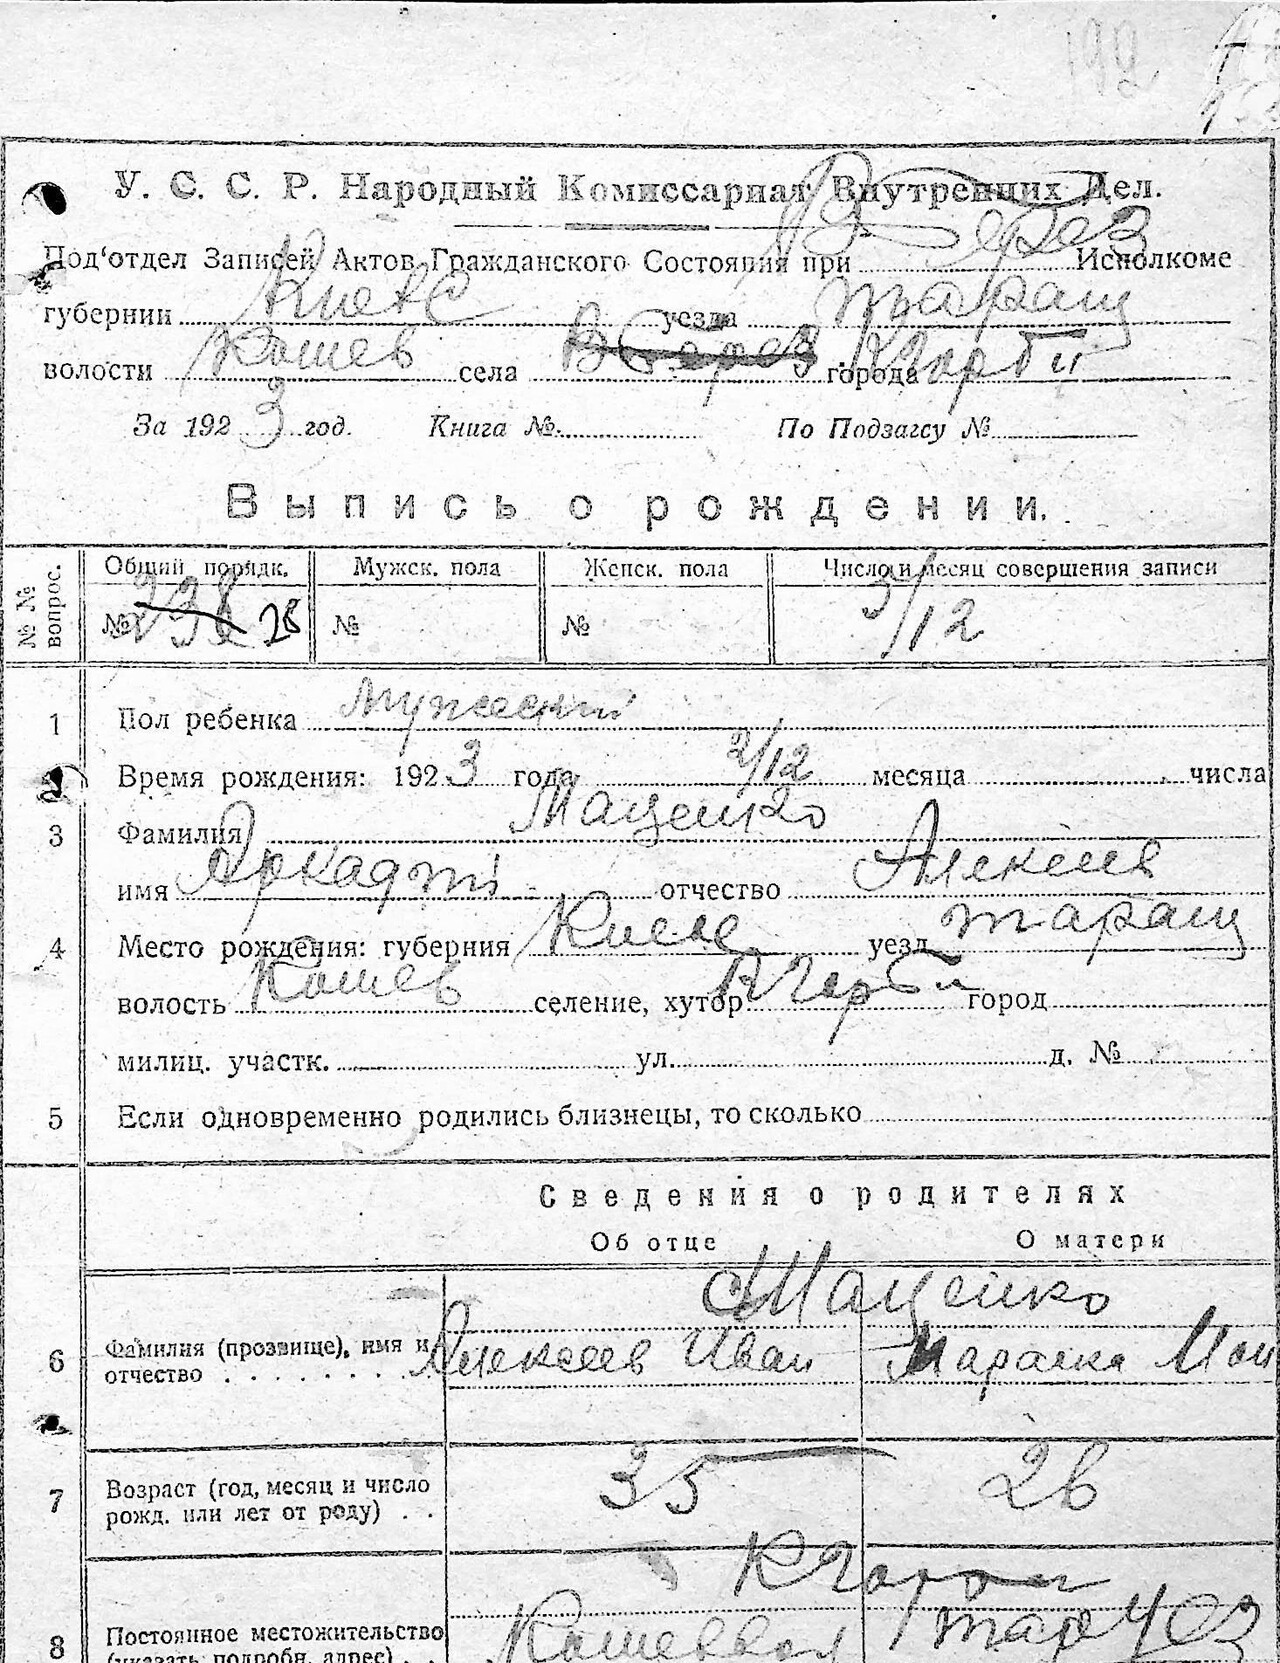 192
У. С. С. Р. Народный Комиссариат Внутренних Дел.
Под‘отдел Записей Актов Гражданского Состояния при В Берез Исполкоме
губернии Киевс уезда таращ
волости Кошев села города КГорби
За 1923 год. Книга №. По Подзагсу №
Выпись о рождении.
№ № вопрос. Общий порядк. Мужск. пола Женск. пола Число и месяц совершения записи
№ 28 № № 3/12
1 Пол ребенка мужеский
2 Время рождения: 1923 года 2/12 месяца числа
3 Фамилия Маценко
имя Аркадий отчество Алексеев
4 Место рождения: губерния Киевс уезд таращ
волость Кошев селение, хутор КГорби город
милиц. участк. ул. д. №
5 Если одновременно родились близнецы, то сколько
Сведения о родителях
Об отце О матери
Маценко
6 Фамилия (прозвище), имя и Алексеев Иван
отчество
7 Возраст (год, месяц и число 35 26
рожд. или лет от роду)
КГорби
8 Постоянное местожительство
(указать подробн. адрес)